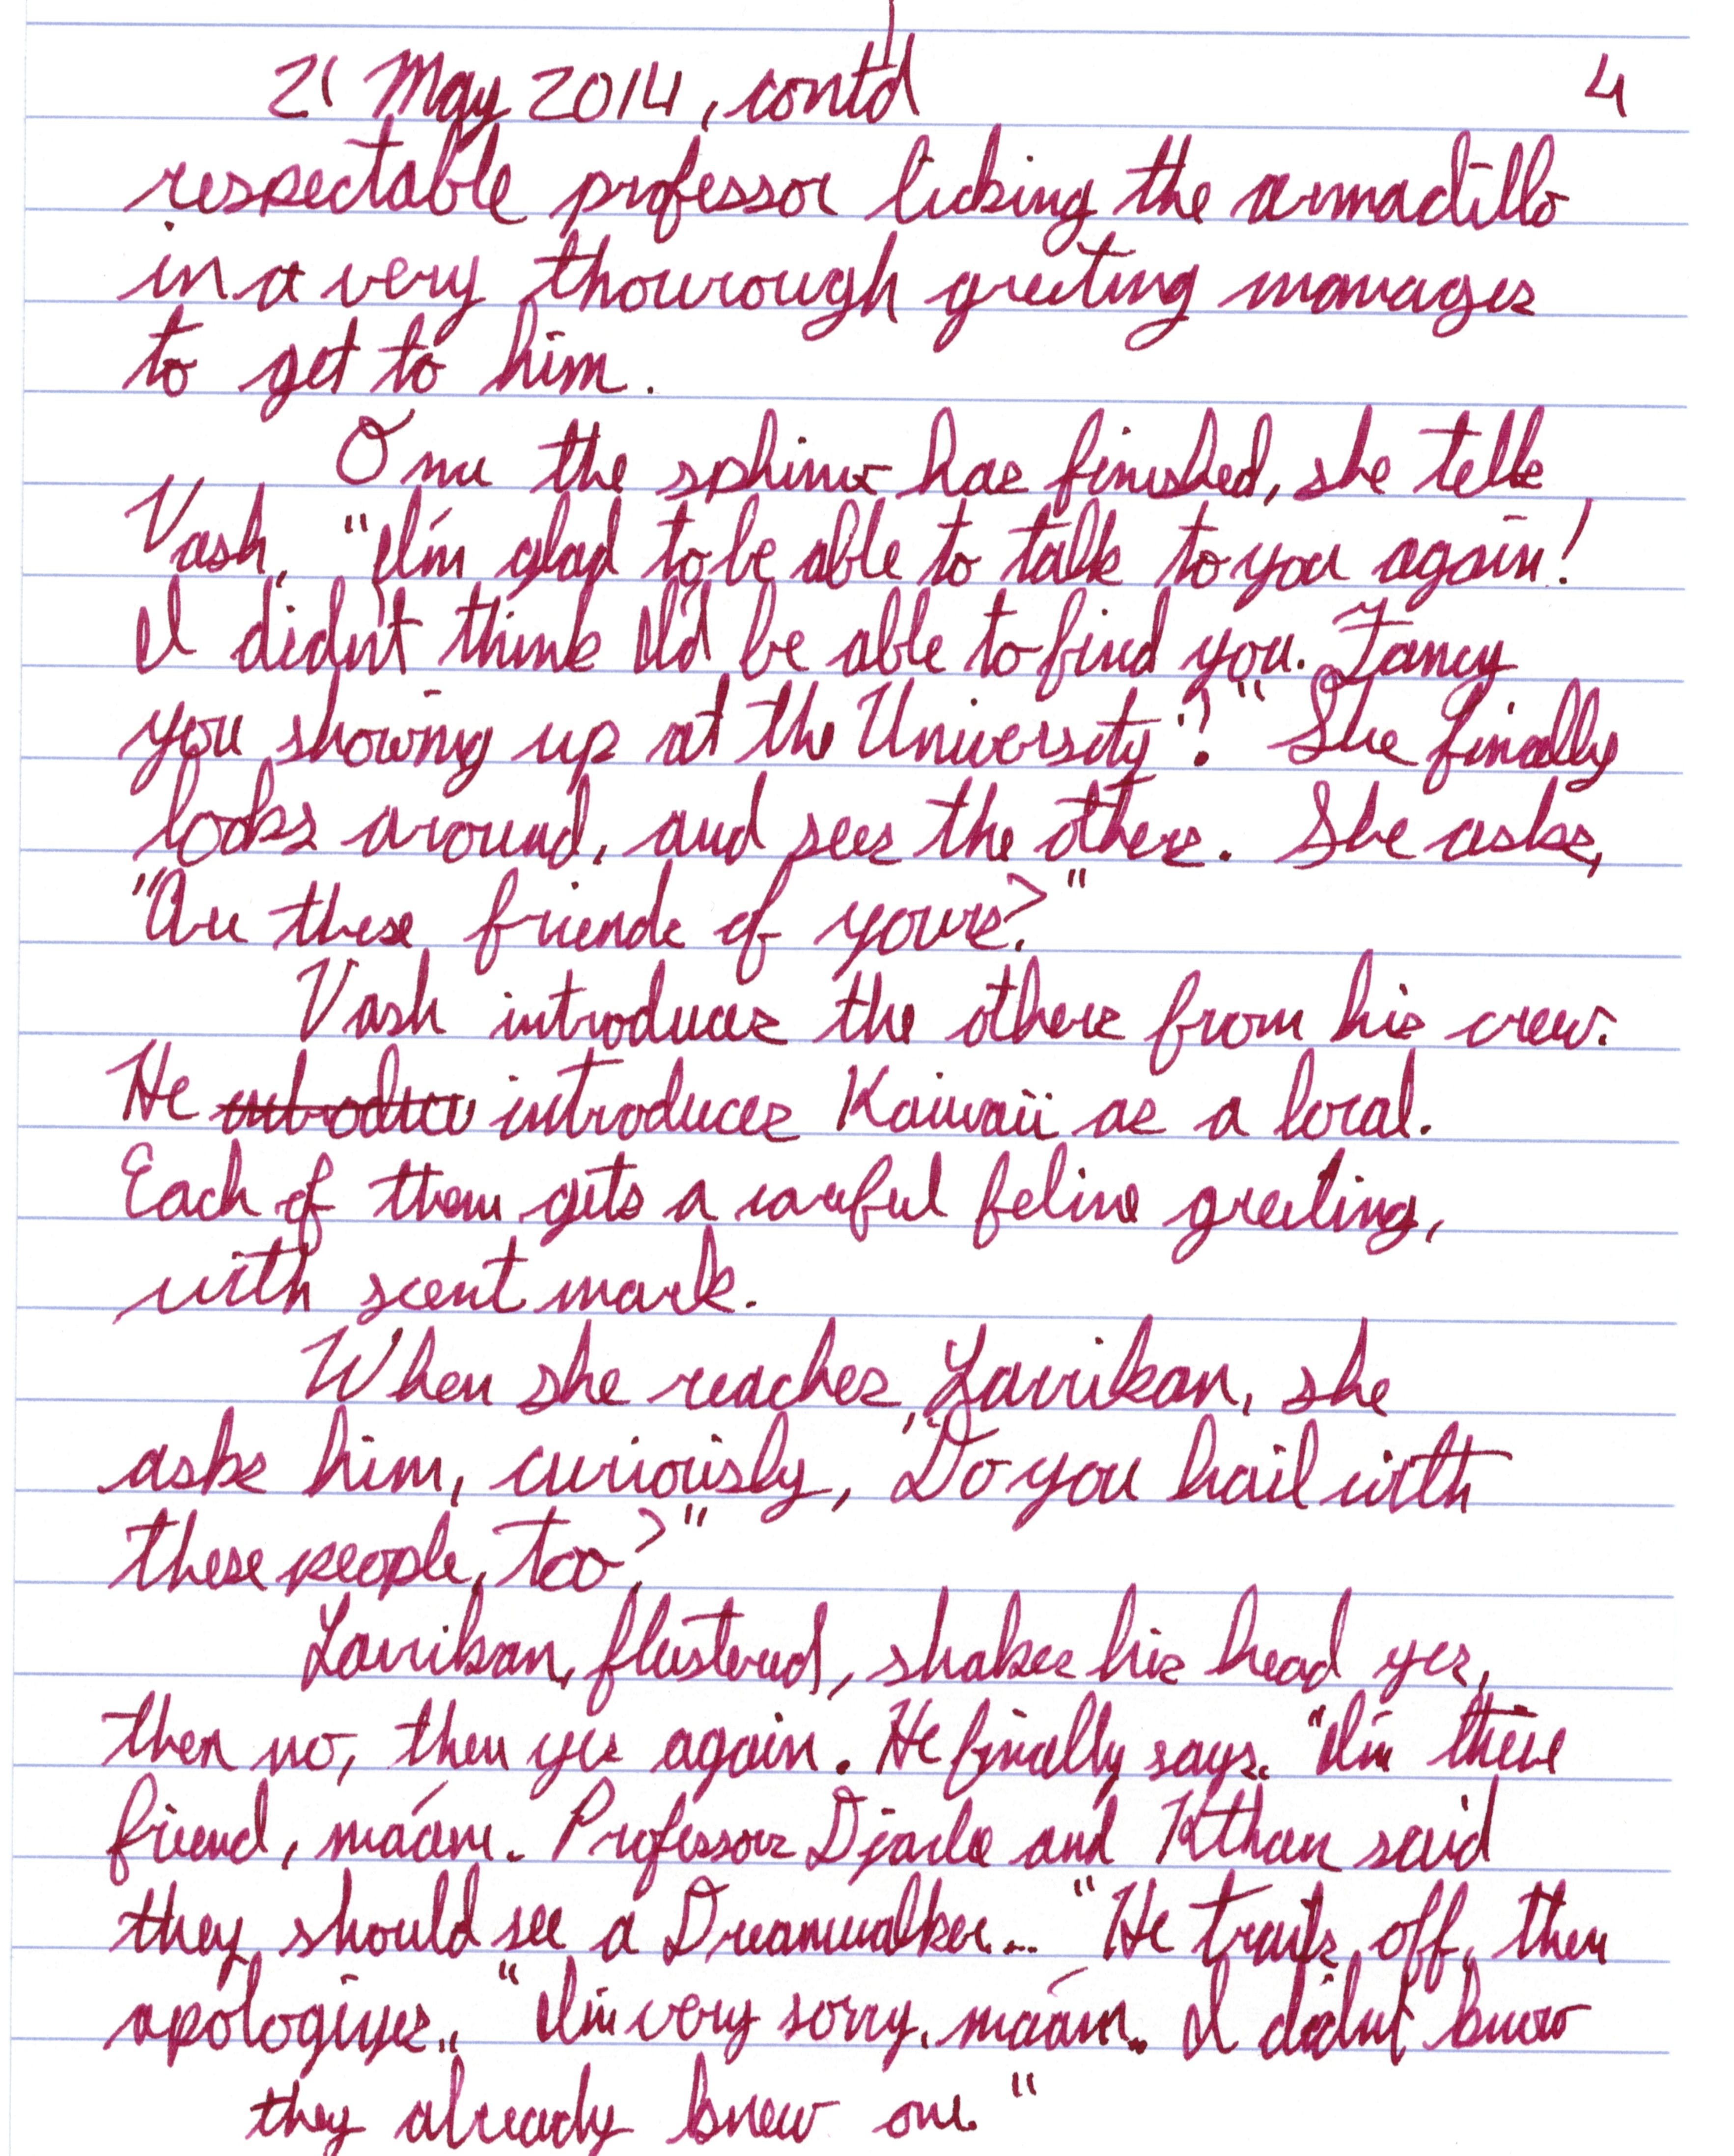 21 May 2014, contd 4
respectable professor licking the armadillo
in a very thourough greeting manages
to get to him.
Once the sphinx has finished, she tells
Vash, "I'm glad to be able to talk to you again!
I didn't think I'd be able to find you. Fancy
you showing up at the University!" She finally
looks around, and sees the others. She asks,
"Are these friends of yours?"
Vash introduces the others from his crew.
He introduces Kaiwaii as a local.
Each of them gets a careful feline greeting,
with scent mark.
When she reaches Larrikan, she
asks him, curiously, "Do you hail with
these people, too?"
Larrikan, flustered, shakes his head yes,
then no, then yes again. He finally says, "I'm their
friend, ma'am. Professors and Kthan said
they should see a Dreamwalker..." He trails off, then
apologizes, "I'm very sorry, ma'am. I didn't know
they already knew one."